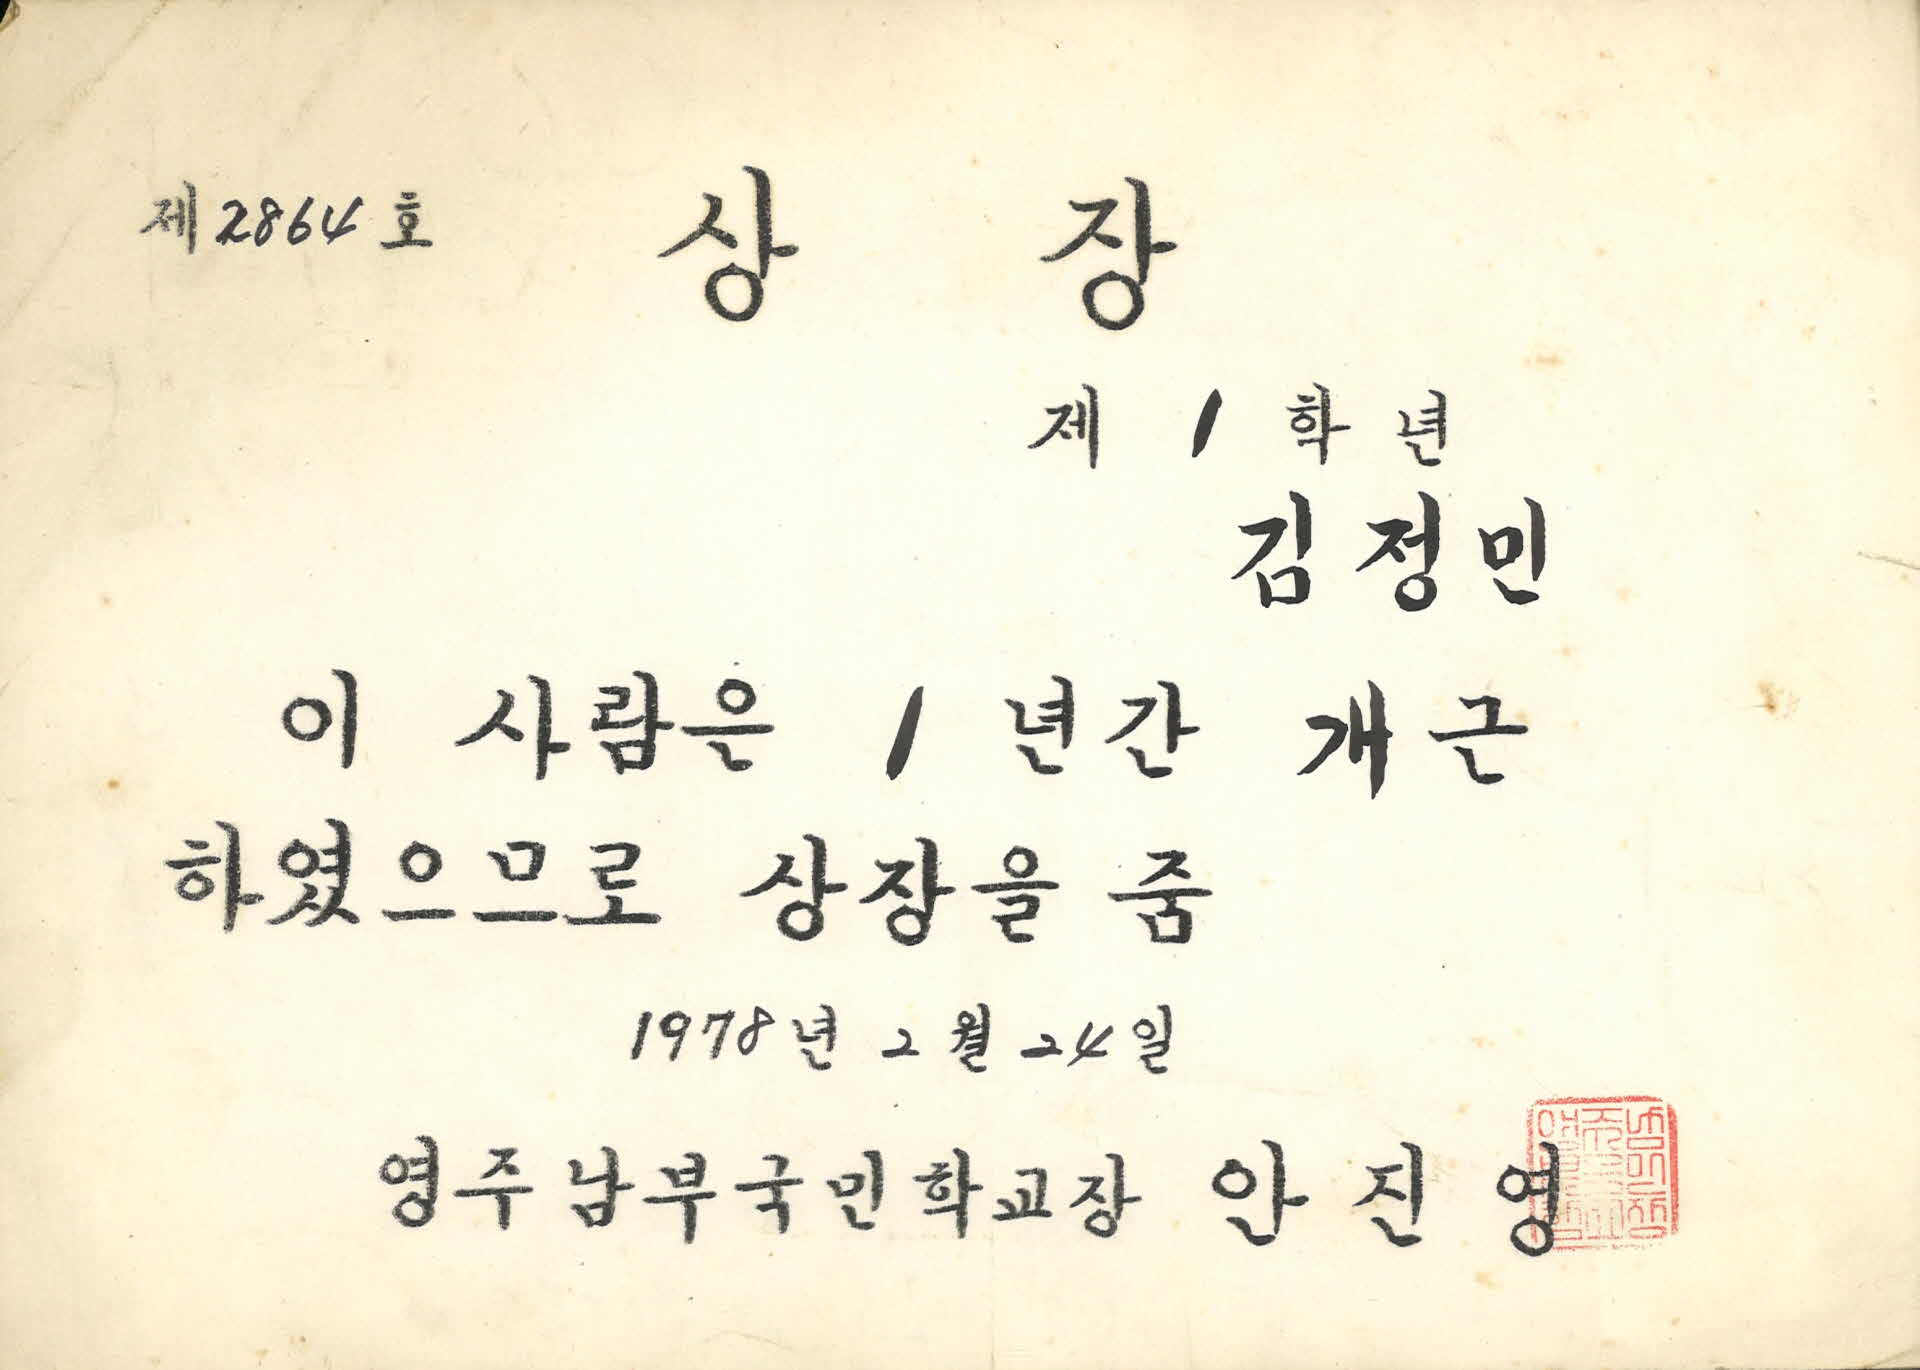 제 2864 호
상 장
제 1 학 년
김 정 민
이 사람은 1 년간 개근
하였으므로 상장을 줌
1978 년 2 월 24 일
영주남부국민학교장 안 진 영